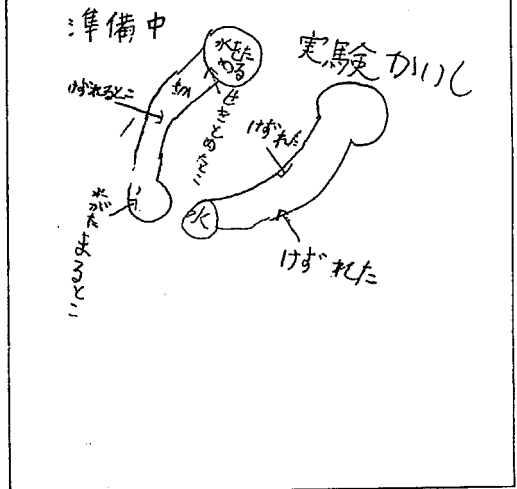 準備中
水をた
める
けずれるとこ
せきとめたとこ
水がたまるとこ
実験かいし
けずれた
水
けずれた